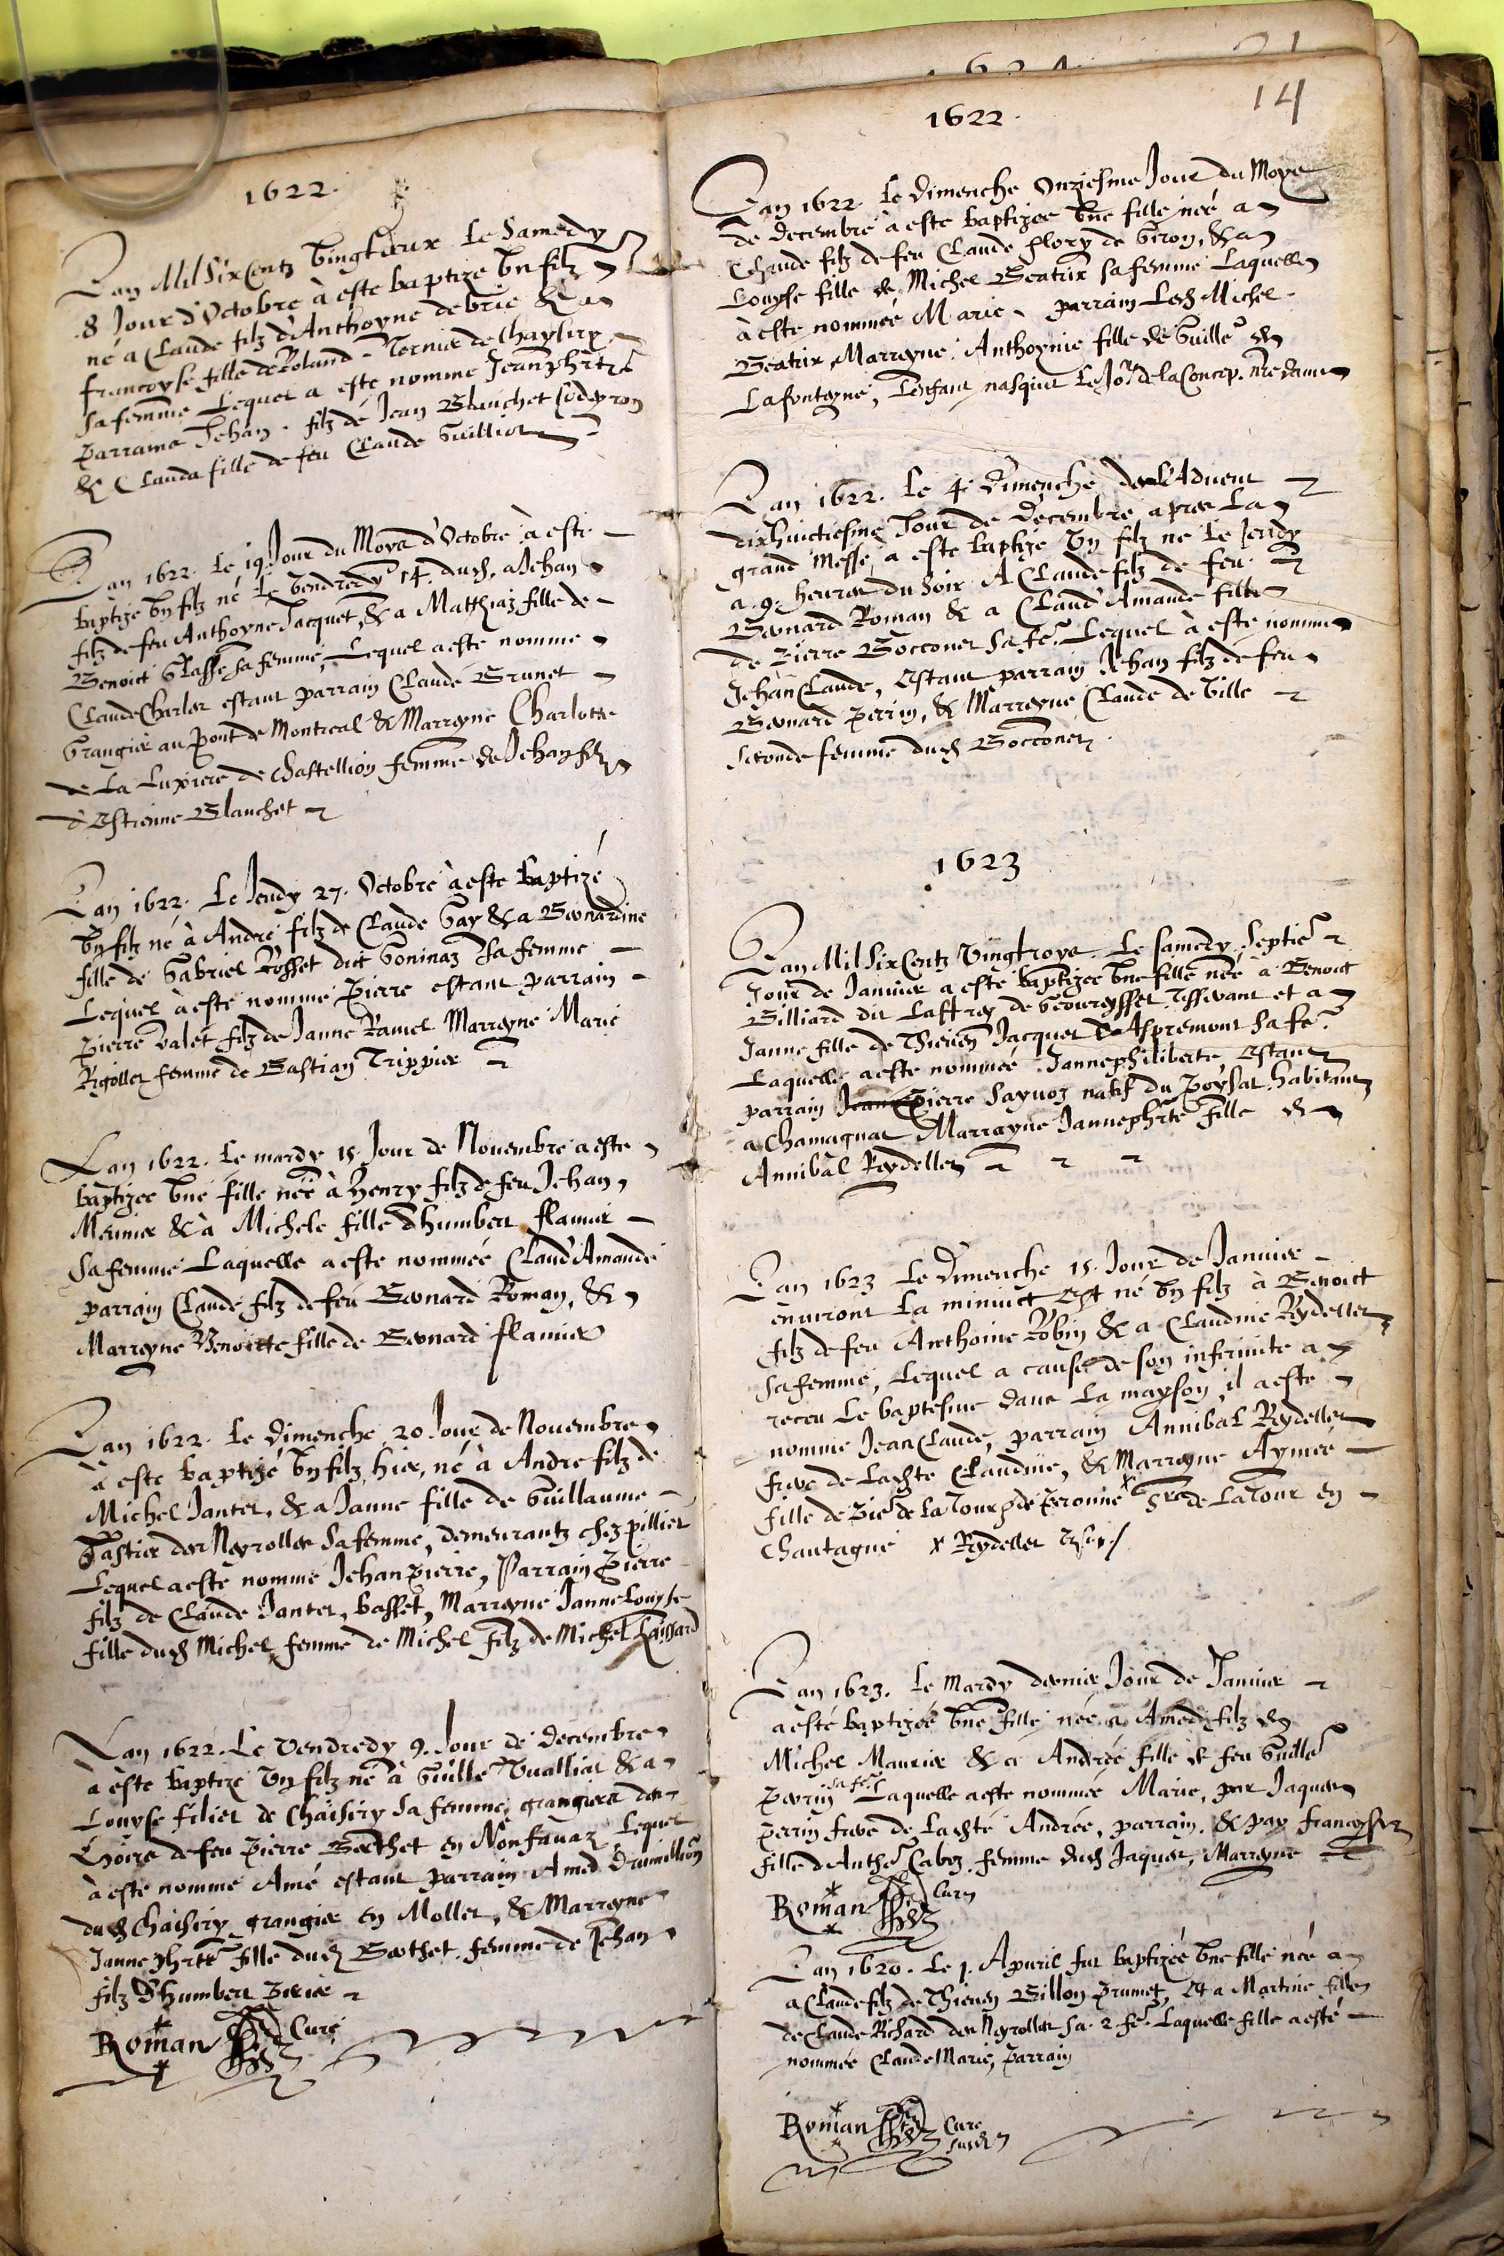 1622.
Lan Mil Six Centz Vingtdeux le Samedy
8 Jour d'Octobre à este baptize Vn filz
né a Claude filz d'Anthoyne debrie & a
francoyse fille de Roland Vernier de Chaysirx
sa femme Lequel a este nomme Jeanphrt
parrame Jehan filz de Jean Blanchet
& Clauda fille de feu Claude Guilliot
Lan 1622. Le 19 Jour du Moys d'Octobre à este
baptize Vn filz né Le Vendredy 14. dud. a Jehan
filz de feu Anthoyne Jacquet, & a Matthiaz fille de
Benoict Vlasse sa femme, Lequel a este nomme
Claude Charles estant parrain Claude Brunet
Grangier au Pont de Montreal & Marreyne Charlotte
de La Luxiere de Chastellion femme de Jehan filz
d'Estienne Blanchet
Lan 1622. Le Jeudy 27. Octobre à este baptizé
Vn filz né à André filz de Claude Gay & a Bernardine
fille de Gabriel Rosset dit Goninaz sa femme
Lequel à este nomme Pierre estant parrain
Pierre Valet filz de Janne Ramel Marreyne Marie
Rigollet femme de Bastian Trippier
Lan 1622. Le mardy 15 Jour de Nouembre a este
baptizee Vne fille née à Henry filz de feu Jehan
Mermier & à Michele fille d'humbert flamier
sa femme Laquelle a este nommée Claud'Amande
parrain Claude filz de feu Bernard Roman, &
Marreyne Benoitte fille de Bernard flamier
Lan 1622. Le Dimenche 20 Jour de Nouembre
à este baptizé Vn filz, hier, né à Andre filz de
Michel Jantet, & a Janne fille de Guillaume
Gastier des Neyrolles sa femme, demeurantz chez pillier
Lequel a este nomme Jehan Pierre, Parrain Pierre
filz de Claude Jantet, basset, Marreyne Janne Louyse
fille dud Michel femme de Michel filz de Michel Laissard
Lan 1622. Le Vendredy 9. Jour de decembre
à este baptize Vn filz né à Guille Vualliat & a
Louyse filiet de Chaisiry sa femme, grangiers des
hoirs de feu Pierre Berthet en Nonfauaz Lequel
à este nomme Amé estant parrain Amed Drumillion
dud Chaisiry grangier en Mollet, & Marreyne
Janne phrte fille dud Berthet femme de Jehan
filz d'humbert
Roman Curé
14
1622.
Lan 1622 Le Dimenche Vnziesme Jour du Moys
de decembre à este baptizee Vne fille née a
Claude filz de feu Claude flory de Giron, & a
Louyse fille de Michel Beatrix sa femme Laquelle
à este nommée Marie, parrain Led Michel
Beatrix Marreyne Anthoynie fille de Guille de
Lafonteyne, Lenfant nasquit Le Jor de la Concep. nre dame
Lan 1622. Le 4e Dimenche de L'Aduent
dixhuictiesme Jour de Decembre apres La
grand Messe, a este baptize Vn filz né le Jeudy
a 9 heures du soir A Claude filz de feu
Bernard Roman & a Claud'Amande fille
de Pierre Bocconet sa fe. Lequel à este nomme
Jehan Claude, Estant parrain Jehan filz de feu
Bernard Perrin, & Marreyne Claude de Ville
seconde femme dud Bocconet
1623
Lan Mil Six Centz Vingtroys Le samedy Septie
Jour de Januier a este baptizee Vne fille née à Benoit
Billiard dit Laffrey de Geoureysset et a
Janne fille de Thieuen Jacquet d'Aspremont sa fe
Laquelle a este nommée Jannephiliberte, Estant
parrain Jean Pierre Sayuoz natif du Poysat habitant
a Chamagnat Marrayne Jannephrte fille de
Annibal Reydellet
Lan 1623 Le Dimenche 15. Jour de Januier
enuiront La minuict Est né Vn filz à Benoict
filz de feu Anthoine Robin & a Claudine Reydellet
sa femme, Lequel a cause de son infirmite a
receu Le baptesme dans La mayson il a este
nomme Jean Claude, parrain Annibal Reydellet
frere de Ladte Claudine, & Marreyne Aymée
fille de de La Tour de Peronne x de La Tour en
Chautagne x Reydellet
Lan 1623. Le Mardy dernier Jour de Januier
a esté baptizée Vne fille née a Amed filz de
Michel Maurier & a Andrée fille de feu Guille
Perrin sa fe Laquelle a este nommée Marie, par Jaques
Perrin frere de Ladte Andrée, parrain, & par francoyse
fille d'Anthe Caboz femme dud Jaques, Marreyne
Roman Curé
Lan 1620. Le 1. Apuril fut baptizée Vne fille née a
a Claude filz de Thieuen Billon Prumet, Et a Martine fille
de Claude Richard des Neyrolles sa 2. fe. Laquelle fille a esté
nommée Claude Marie, parrain
Roman Cure
susd